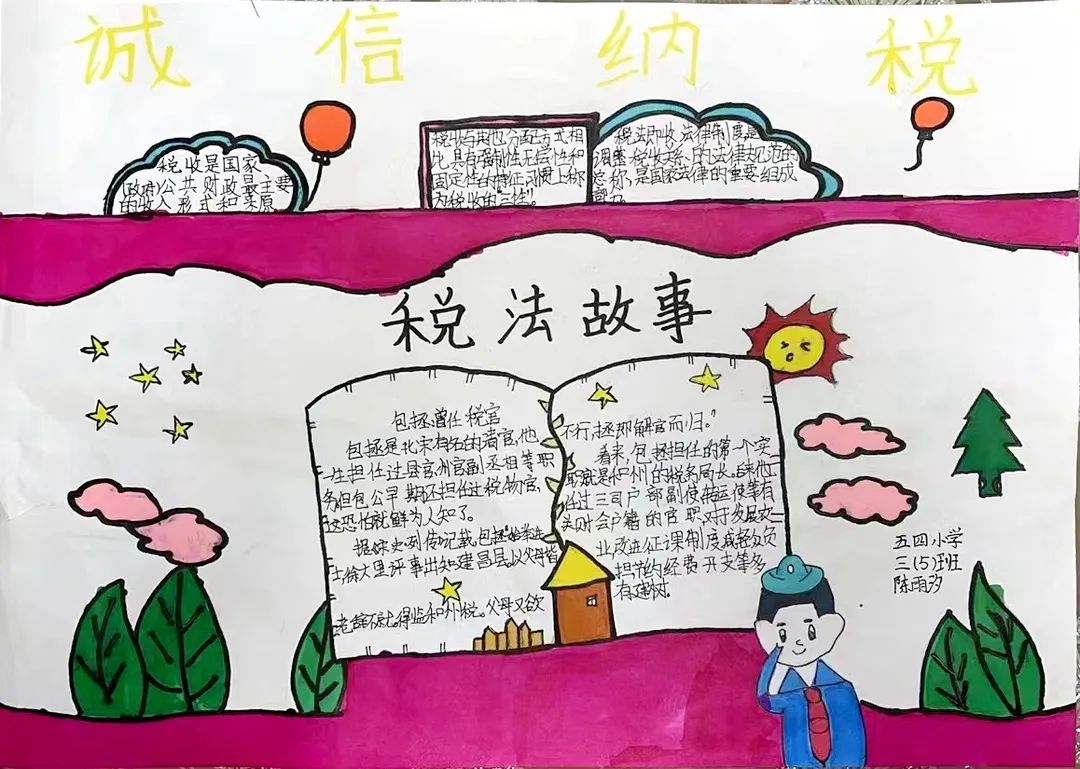 诚信纳税
税收是国家
(政府)公共财政最主要
的收入形式和来原
税收与其他分配方式相
比,具有强制性无偿性和
固定性的特征习惯上称
为税收的“三性”。
税法即收法律制度,是
调整税收关系的法律规范的
总称,是国家法律的重要组成
部分。
税法故事
包拯曾任税官
包拯是北宋有名的清官,他
一生担任过县官州官副丞相等职
务但包公早期还担任过税物官,
这恐怕就鲜为人知了。
据宋史列传记载,包拯始举进
士徐大里评事出知建昌县,以父母皆
老辞不就。得监和州税。父母又欲
不行,拯即解官而归。”
看来,包拯担任的第一个实
职就是和州的税务局长。后来他
任过三司户部副使转运使等有
关财会户籍的官职,对于发展农
业改进征课制度减轻负
担节约经费开支等多
有建树。
五四小学
三(5)班
陈雨汐